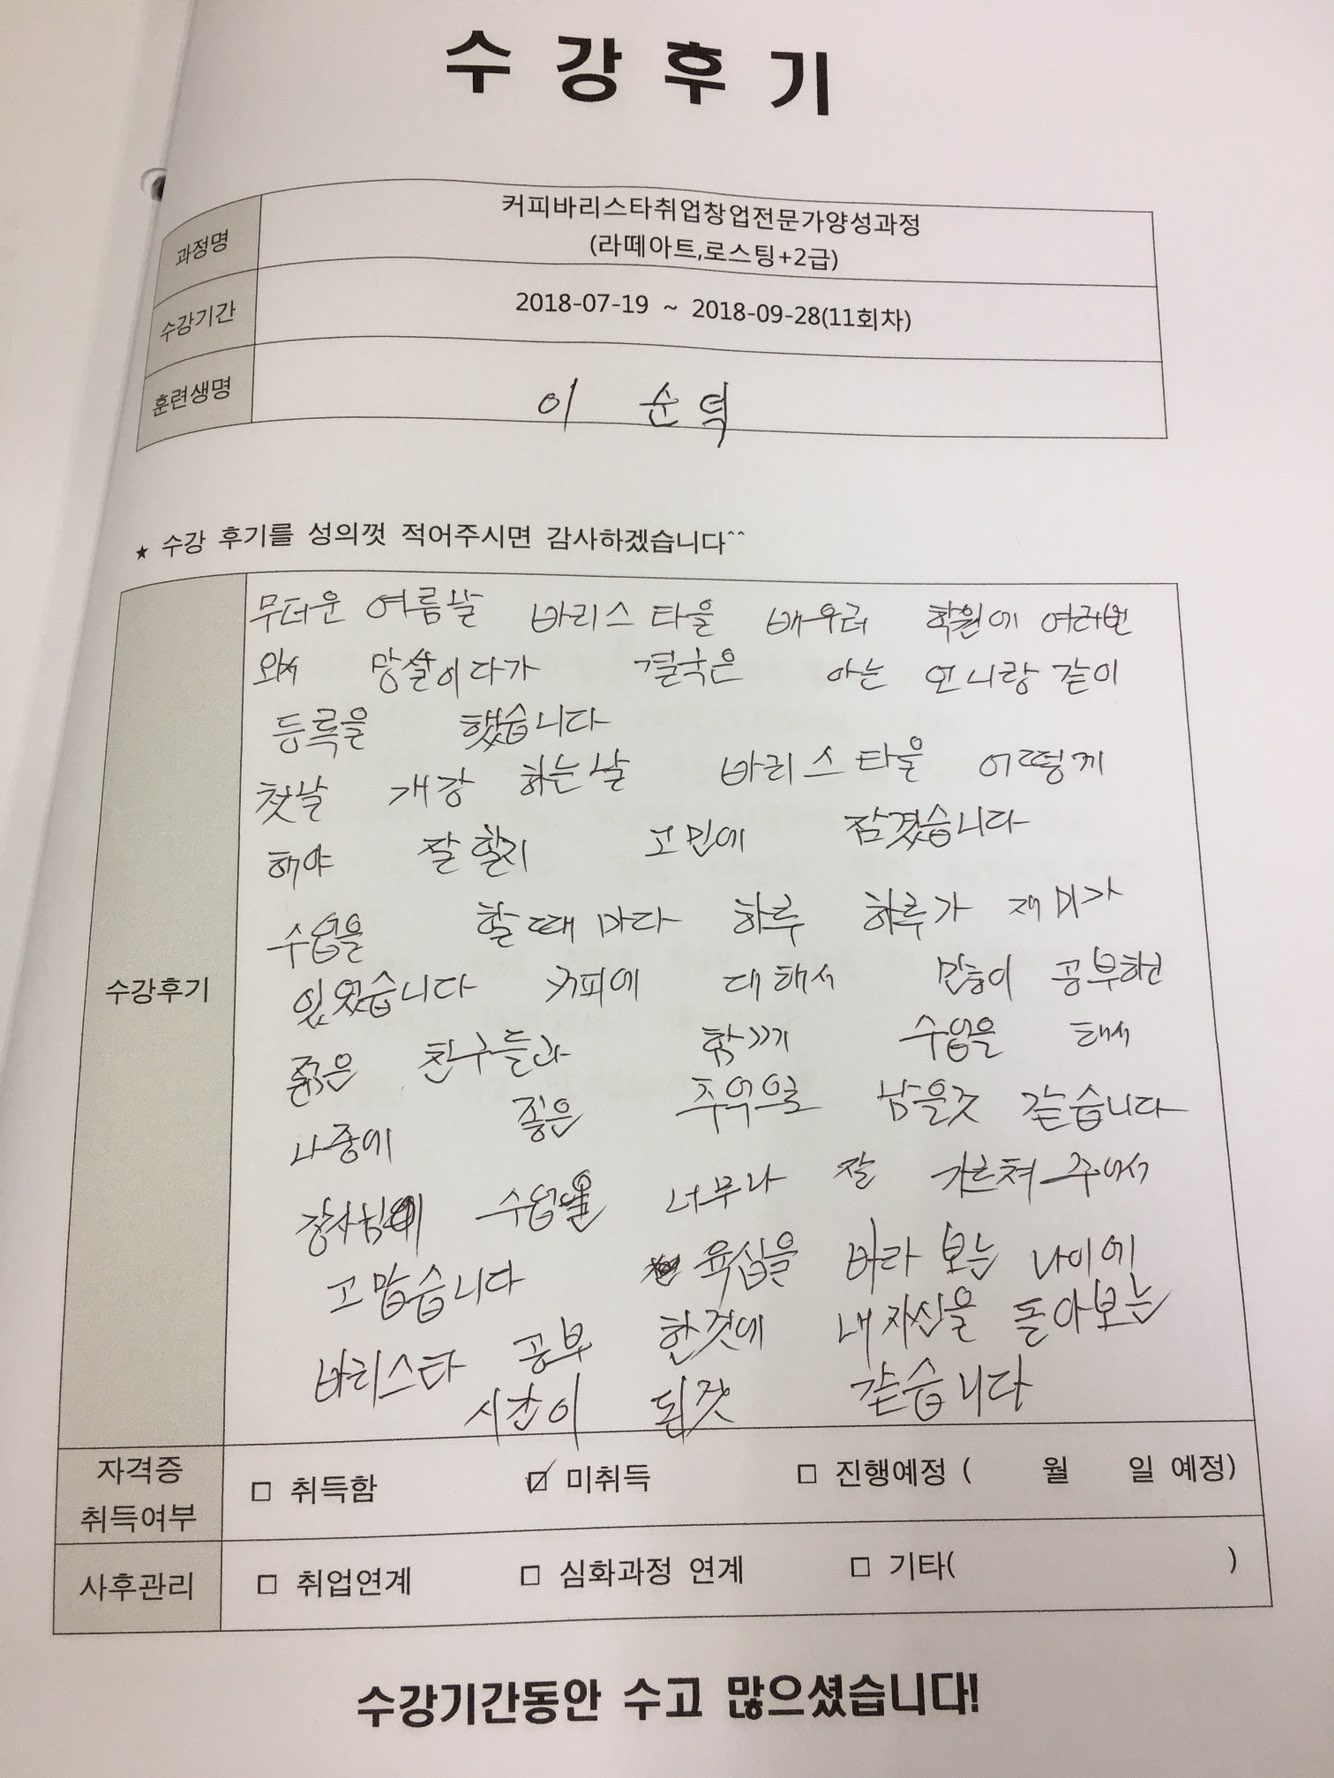 수강후기
과정명
커피바리스타취업창업전문가양성과정
(라떼아트,로스팅+2급)
수강기간
2018-07-19 ~ 2018-09-28(11회차)
훈련생명
이 순덕
★ 수강 후기를 성의껏 적어주시면 감사하겠습니다^^
수강후기
무더운 여름날 바리스타을 배우러 학원에 여러번
와서 망설이다가 결국은 아는 언니랑 같이
등록을 했습니다
첫날 개강 하는날 바리스타을 어떻게
해야 잘 할지 고민에 잠겼습니다
수업을 할때 마다 하루 하루가 재미가
있었습니다 커피에 대해서 많이 공부하신
젊은 친구들과 함께 수업을 해서
나중에 좋은 추억으로 남을것 같습니다
강사님이 수업을 너무나 잘 가르쳐 주어서
고맙습니다 육십을 바라 보는 나이에
바리스타 공부 한것에 내 자신을 돌아보는
시간이 된것 같습니다
자격증
취득여부
□ 취득함 ☑ 미취득 □ 진행예정 ( 월 일 예정)
사후관리
□ 취업연계 □ 심화과정 연계 □ 기타( )
수강기간동안 수고 많으셨습니다!